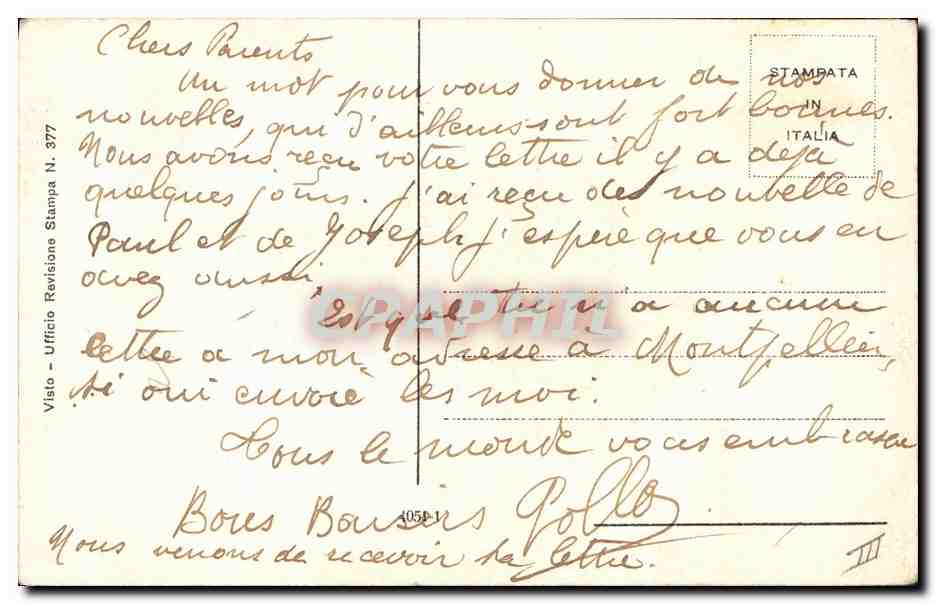 Chers Parents
Un mot pour vous donner de nos
nouvelles, qui d'ailleurs sont fort bonnes.
Nous avons reçu votre lettre il y a dejà
quelques jours. J'ai reçu des nouvelle de
Paul et de Joseph j'espère que vous en
avez aussi.
Est que tu n'a aucune
lettre a mon adresse à Montpellier,
si oui envoie les moi.
Tous le monde vous embrasse
Bons Baisers
Nous venons de recevoir ta lettre.
STAMPATA
IN
ITALIA
Visto - Ufficio Revisione Stampa N. 377
4054-1
III
CPAPHIL